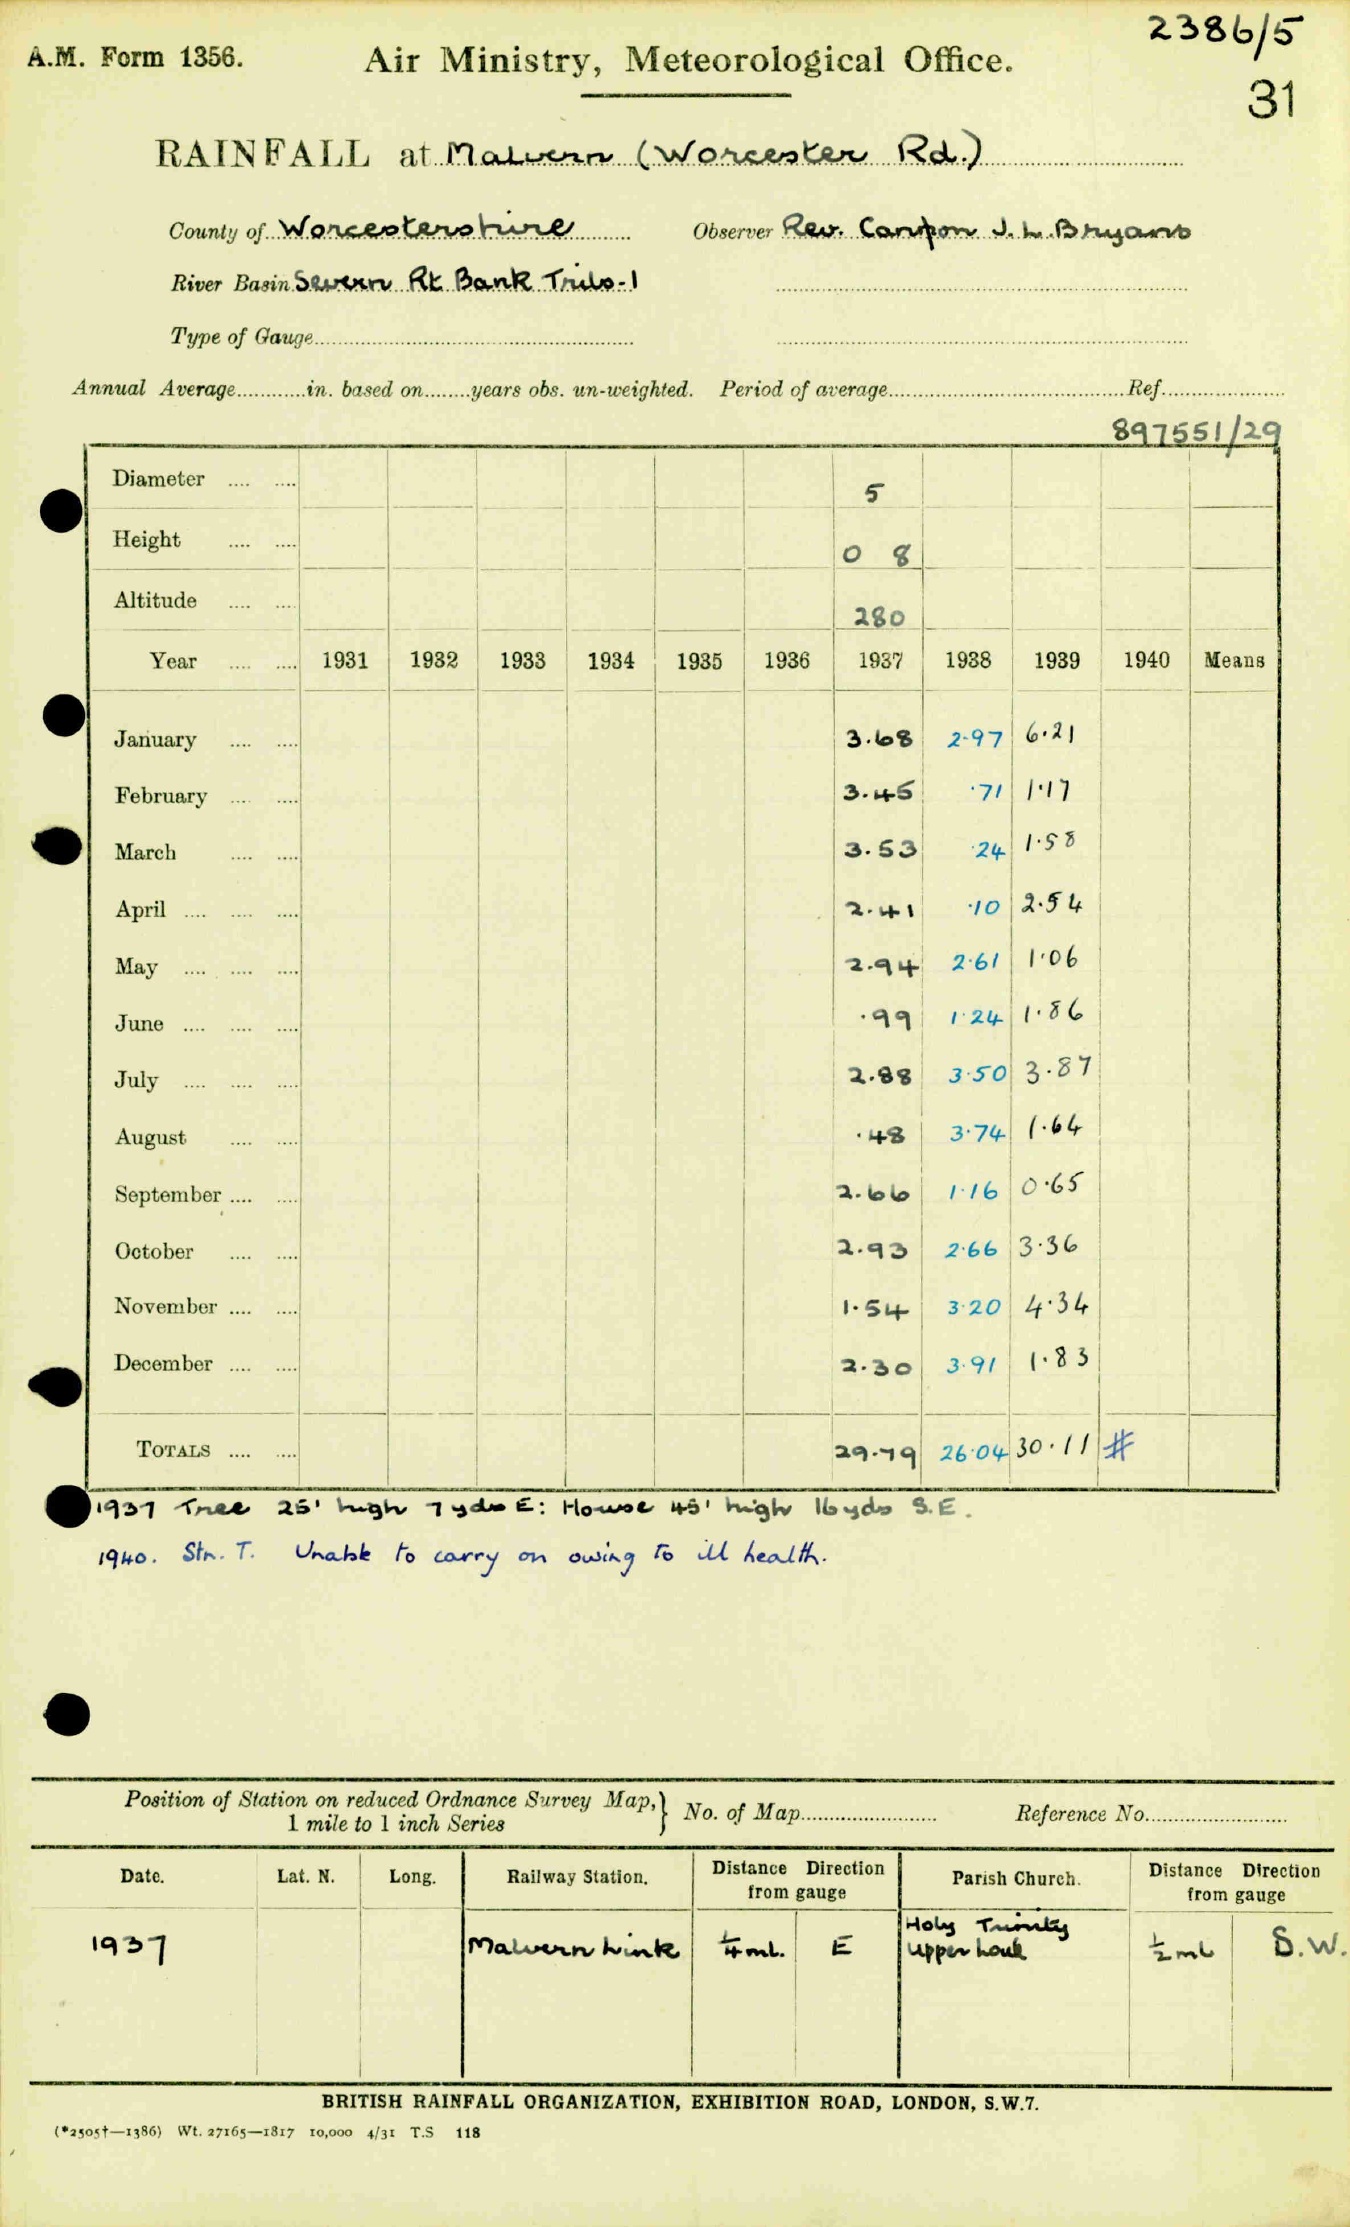 2386/5
A.M. Form 1356. Air Ministry, Meteorological Office.
31
RAINFALL at Malvern (Worcester Rd.)
County of Worcestershire Observer Rev. Canon J. L. Bryans
River Basin Severn Rt Bank Tribs-1
Type of Gauge
Annual Average in. based on years obs. un-weighted. Period of average Ref.
897551/29
Diameter 5
Height 0 8
Altitude 280
Year 1931 1932 1933 1934 1935 1936 1937 1938 1939 1940 Means
January 3.68 2.97 6.21
February 3.45 .71 1.17
March 3.53 .24 1.58
April 2.41 .10 2.54
May 2.94 2.61 1.06
June .99 1.24 1.86
July 2.88 3.50 3.87
August .48 3.74 1.64
September 2.66 1.16 0.65
October 2.93 2.66 3.36
November 1.54 3.20 4.34
December 2.30 3.91 1.83
TOTALS 29.79 26.04 30.11 #
1937 Tree 25' high 7 yds E: House 45' high 16 yds S.E.
1940. Stn. T. Unable to carry on owing to ill health.
Position of Station on reduced Ordnance Survey Map, } No. of Map Reference No.
1 mile to 1 inch Series
Date. Lat. N. Long. Railway Station. Distance Direction from gauge Parish Church. Distance Direction from gauge
Holy Trinity
1937 Malvern Link ¼ ml. E Upper ½ ml S.W.
BRITISH RAINFALL ORGANIZATION, EXHIBITION ROAD, LONDON, S.W.7.
(*2505†—1386) Wt. 27165—1817 10,000 4/31 T.S 118